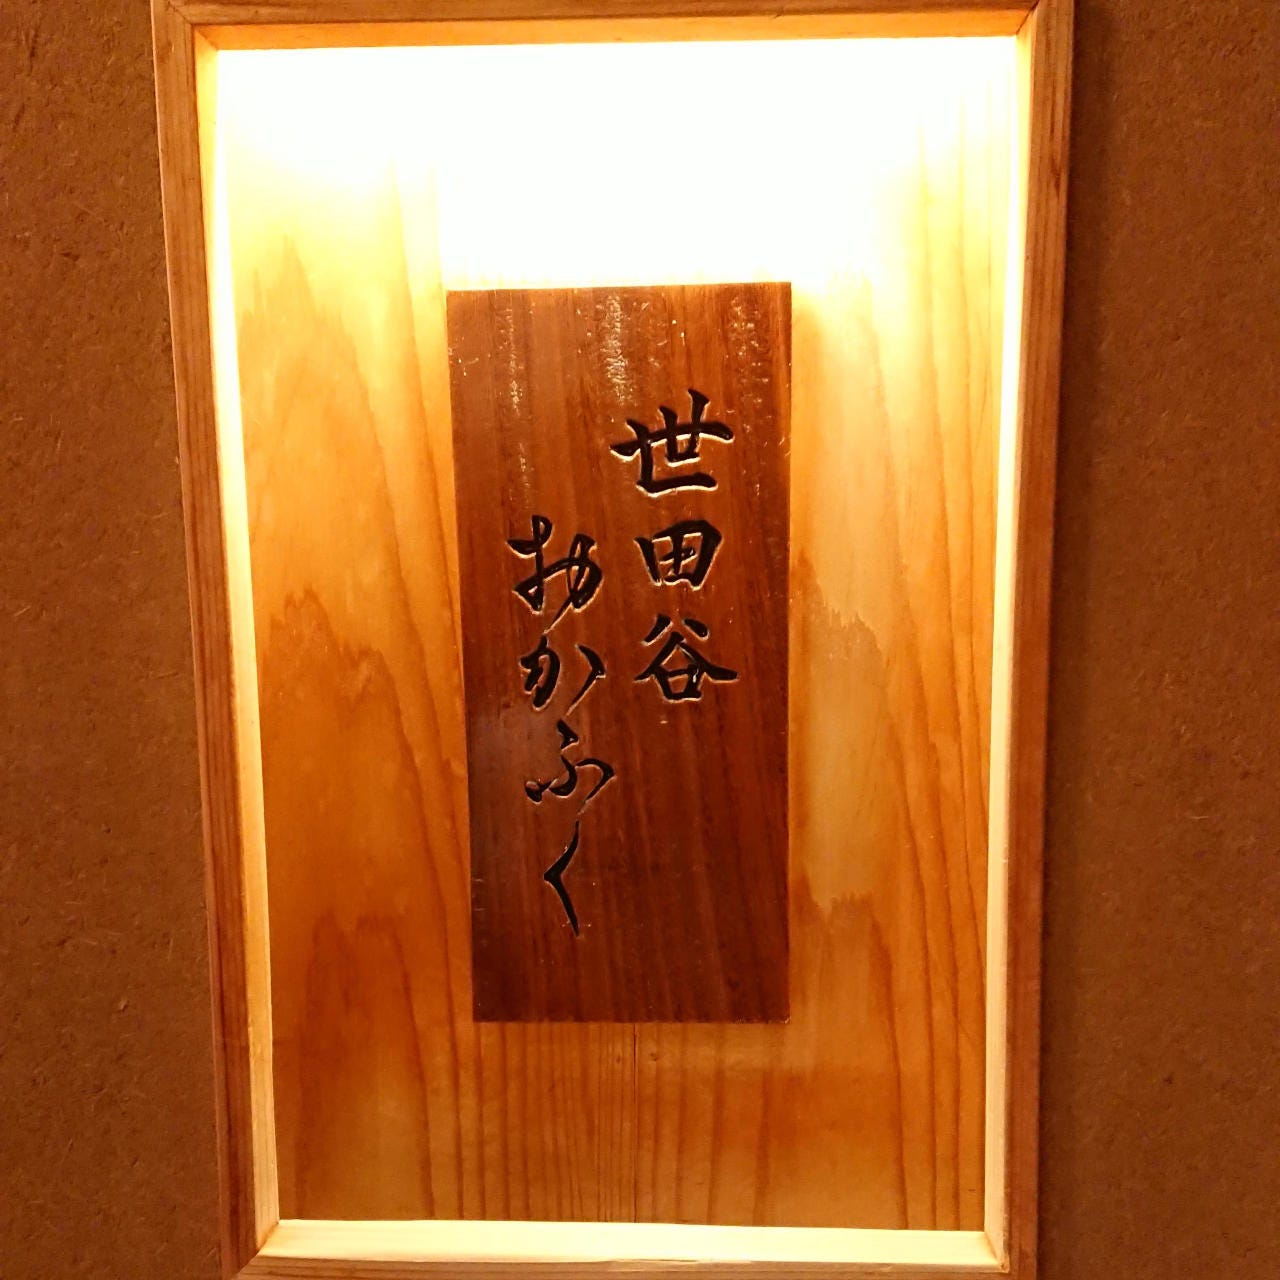 世田谷
おかふく